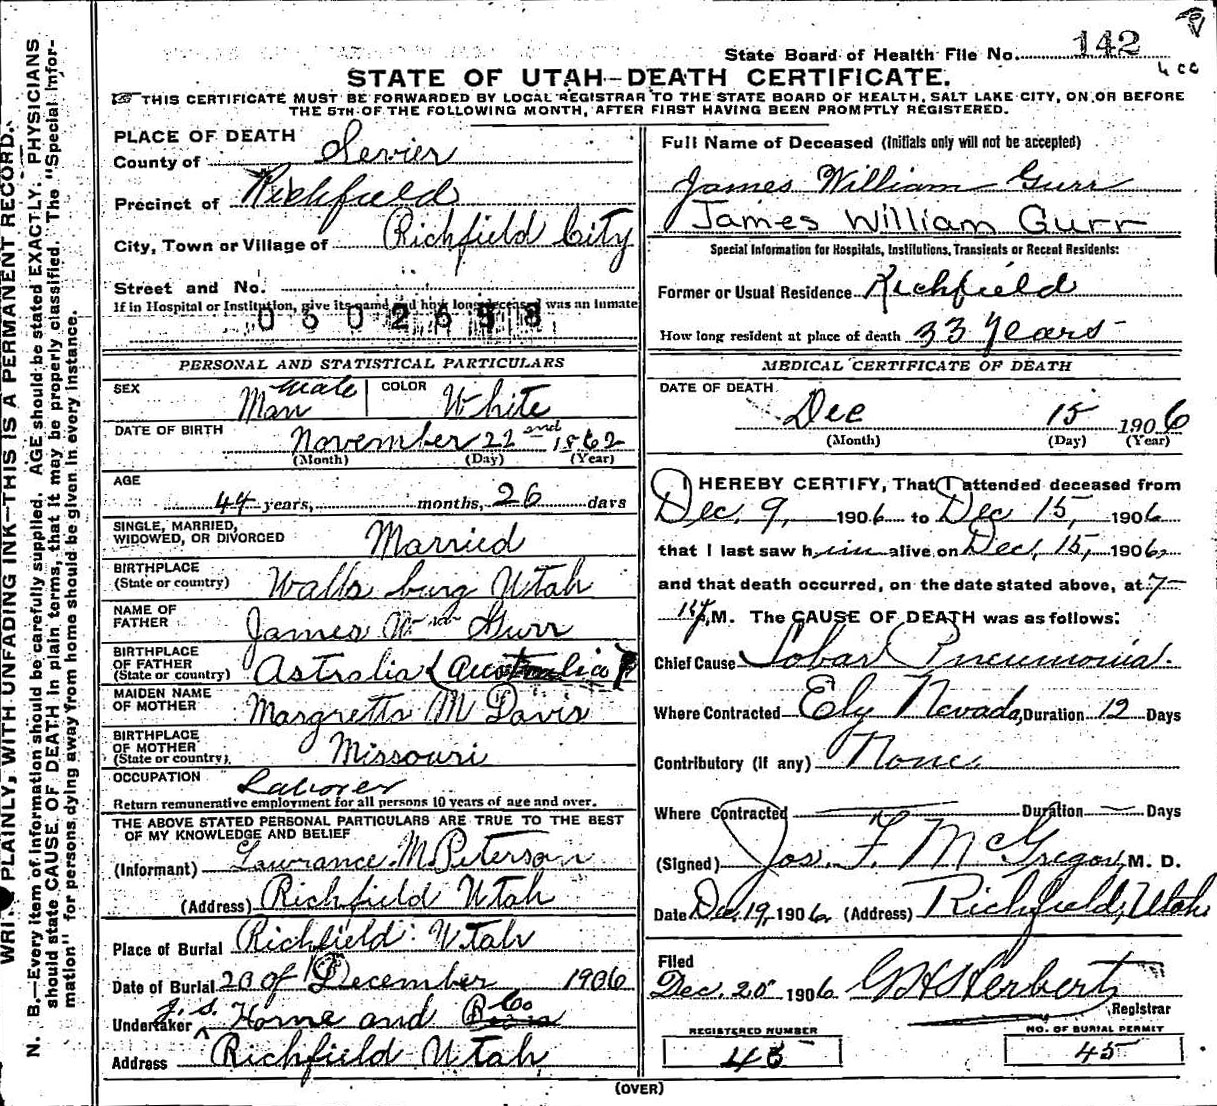 State Board of Health File No. 142
4 cc
STATE OF UTAH—DEATH CERTIFICATE.
THIS CERTIFICATE MUST BE FORWARDED BY LOCAL REGISTRAR TO THE STATE BOARD OF HEALTH, SALT LAKE CITY, ON OR BEFORE
THE 5TH OF THE FOLLOWING MONTH, AFTER FIRST HAVING BEEN PROMPTLY REGISTERED.
WRITE PLAINLY, WITH UNFADING INK—THIS IS A PERMANENT RECORD.
N. B.—Every item of information should be carefully supplied. AGE should be stated EXACTLY. PHYSICIANS
should state CAUSE OF DEATH in plain terms, that it may be properly classified. The "Special Infor-
mation" for persons dying away from home should be given in every instance.
PLACE OF DEATH
County of Sevier
Precinct of Richfield
City, Town or Village of Richfield City
Street and No.
If in Hospital or Institution, give its name and how long deceased was an inmate
PERSONAL AND STATISTICAL PARTICULARS
SEX Man Male COLOR White
DATE OF BIRTH November 22nd 1862
(Month) (Day) (Year)
AGE
44 years, months, 26 days
SINGLE, MARRIED,
WIDOWED, OR DIVORCED Married
BIRTHPLACE
(State or country) Walls burg Utah
NAME OF
FATHER James Wm Gurr
BIRTHPLACE
OF FATHER
(State or country) Astralia (Australia)
MAIDEN NAME
OF MOTHER Margretta M Davis
BIRTHPLACE
OF MOTHER
(State or country) Missouri
OCCUPATION Laborer
Return remunerative employment for all persons 10 years of age and over.
THE ABOVE STATED PERSONAL PARTICULARS ARE TRUE TO THE BEST
OF MY KNOWLEDGE AND BELIEF
(Informant) Lawrance M. Peterson
(Address) Richfield Utah
Place of Burial Richfield Utah
Date of Burial 20 of December 1906
Undertaker J. S. Horne and Co
Address Richfield Utah
Full Name of Deceased (Initials only will not be accepted)
James William Gurr
James William Gurr
Special Information for Hospitals, Institutions, Transients or Recent Residents:
Former or Usual Residence Richfield
How long resident at place of death 33 Years
MEDICAL CERTIFICATE OF DEATH
DATE OF DEATH
Dec 15 1906
(Month) (Day) (Year)
I HEREBY CERTIFY, That I attended deceased from
Dec. 9, 1906 to Dec 15, 1906
that I last saw him alive on Dec. 15, 1906
and that death occurred, on the date stated above, at 7
M. The CAUSE OF DEATH was as follows:
Chief Cause Lobar Pneumonia.
Where Contracted Ely Nevada, Duration 12 Days
Contributory (if any) None
Where Contracted — Duration — Days
(Signed) Jos. F. McGregor, M. D.
Date Dec. 19, 1906 (Address) Richfield, Utah
Filed
Dec. 20 1906 G H S Herbert
Registrar
REGISTERED NUMBER NO. OF BURIAL PERMIT
45 45
(OVER)